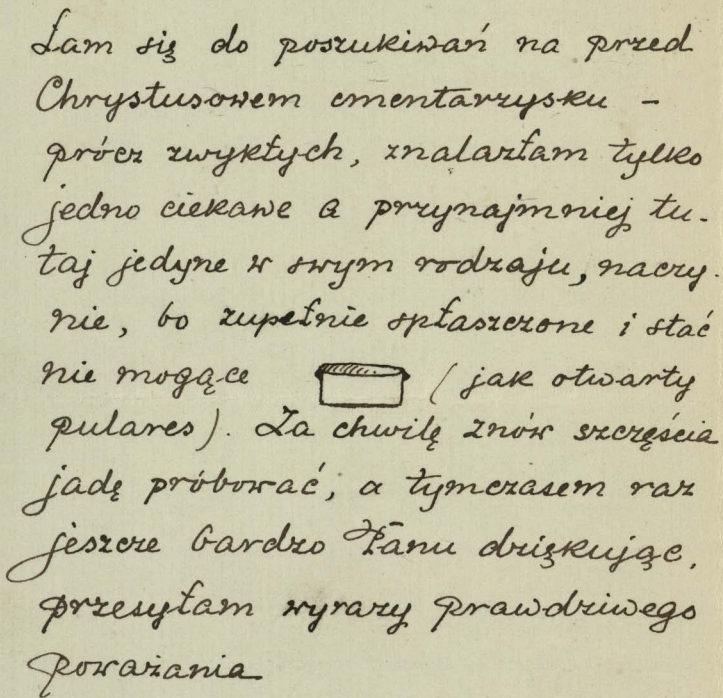 łam się do poszukiwań na przed
Chrystusowem cmentarzysku -
prócz zwykłych, znalazłam tylko
jedno ciekawe a przynajmniej tu-
taj jedyne w swym rodzaju, naczy-
nie, bo zupełnie spłaszczone i stać
nie mogące (jak otwarty
pulares). Za chwilę znów szczęścia
jadę próbować, a tymczasem raz
jeszcze bardzo Panu dziękując,
przesyłam wyrazy prawdziwego
poważania